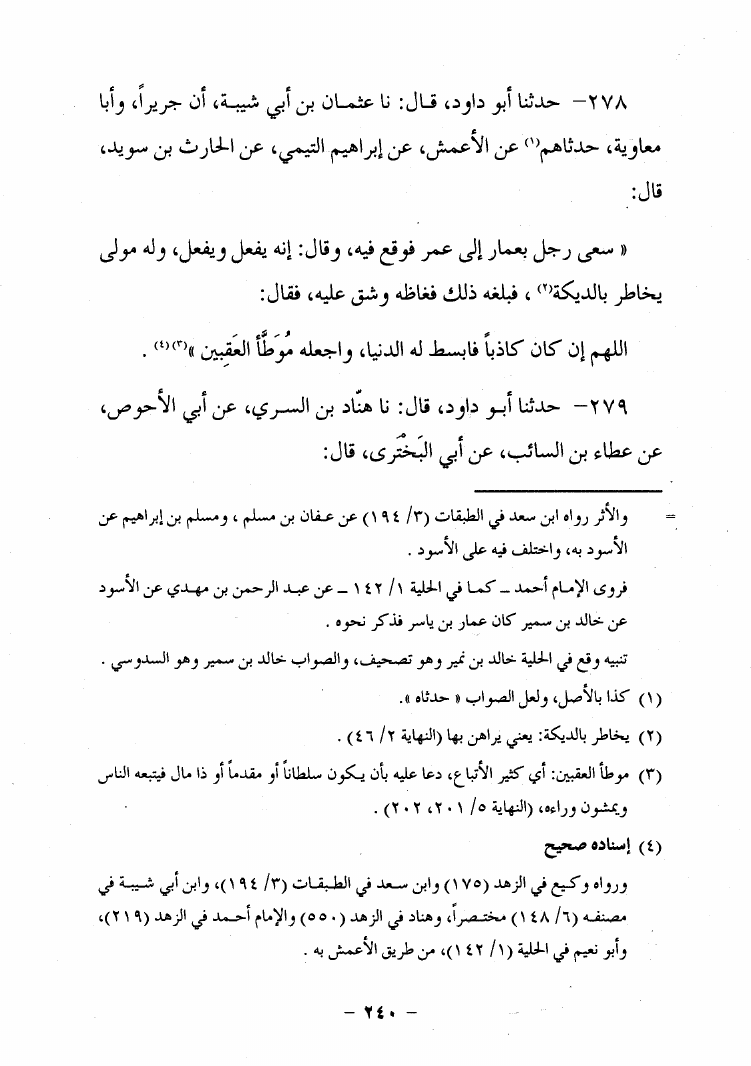 ٢٧٨- حدثنا أبو داود، قال: نا عثمان بن أبي شيبة، أن جريراً، وأبا
معاوية، حدثاهم(١) عن الأعمش، عن إبراهيم التيمي، عن الحارث بن سويد،
قال:
« سعى رجل بعمار إلى عمر فوقع فيه، وقال: إنه يفعل ويفعل، وله مولى
يخاطر بالديكة(٢) ، فبلغه ذلك فغاظه وشق عليه، فقال:
اللهم إن كان كاذباً فابسط له الدنيا، واجعله مُوَطَّأ العَقِبين »(٣)(٤) .
٢٧٩- حدثنا أبو داود، قال: نا هنّاد بن السري، عن أبي الأحوص،
عن عطاء بن السائب، عن أبي البَخْتَرى، قال:
= والأثر رواه ابن سعد في الطبقات (٣/ ١٩٤) عن عفان بن مسلم ، ومسلم بن إبراهيم عن
الأسود به، واختلف فيه على الأسود .
فروى الإمام أحمد ـ كما في الحلية ١/ ١٤٢ ـ عن عبد الرحمن بن مهدي عن الأسود
عن خالد بن سمير كان عمار بن ياسر فذكر نحوه .
تنبيه وقع في الحلية خالد بن نمير وهو تصحيف، والصواب خالد بن سمير وهو السدوسي .
(١) كذا بالأصل، ولعل الصواب « حدثاه ».
(٢) يخاطر بالديكة: يعني يراهن بها (النهاية ٢/ ٤٦) .
(٣) موطأ العقبين: أي كثير الأتباع، دعا عليه بأن يكون سلطاناً أو مقدماً أو ذا مال فيتبعه الناس
ويمشون وراءه، (النهاية ٥/ ٢٠١، ٢٠٢) .
(٤) إسناده صحيح
ورواه وكيع في الزهد (١٧٥) وابن سعد في الطبقات (٣/ ١٩٤)، وابن أبي شيبة في
مصنفه (٦/ ١٤٨) مختصراً، وهناد في الزهد (٥٥٠) والإمام أحمد في الزهد (٢١٩)،
وأبو نعيم في الحلية (١/ ١٤٢)، من طريق الأعمش به .
- ٢٤٠ -